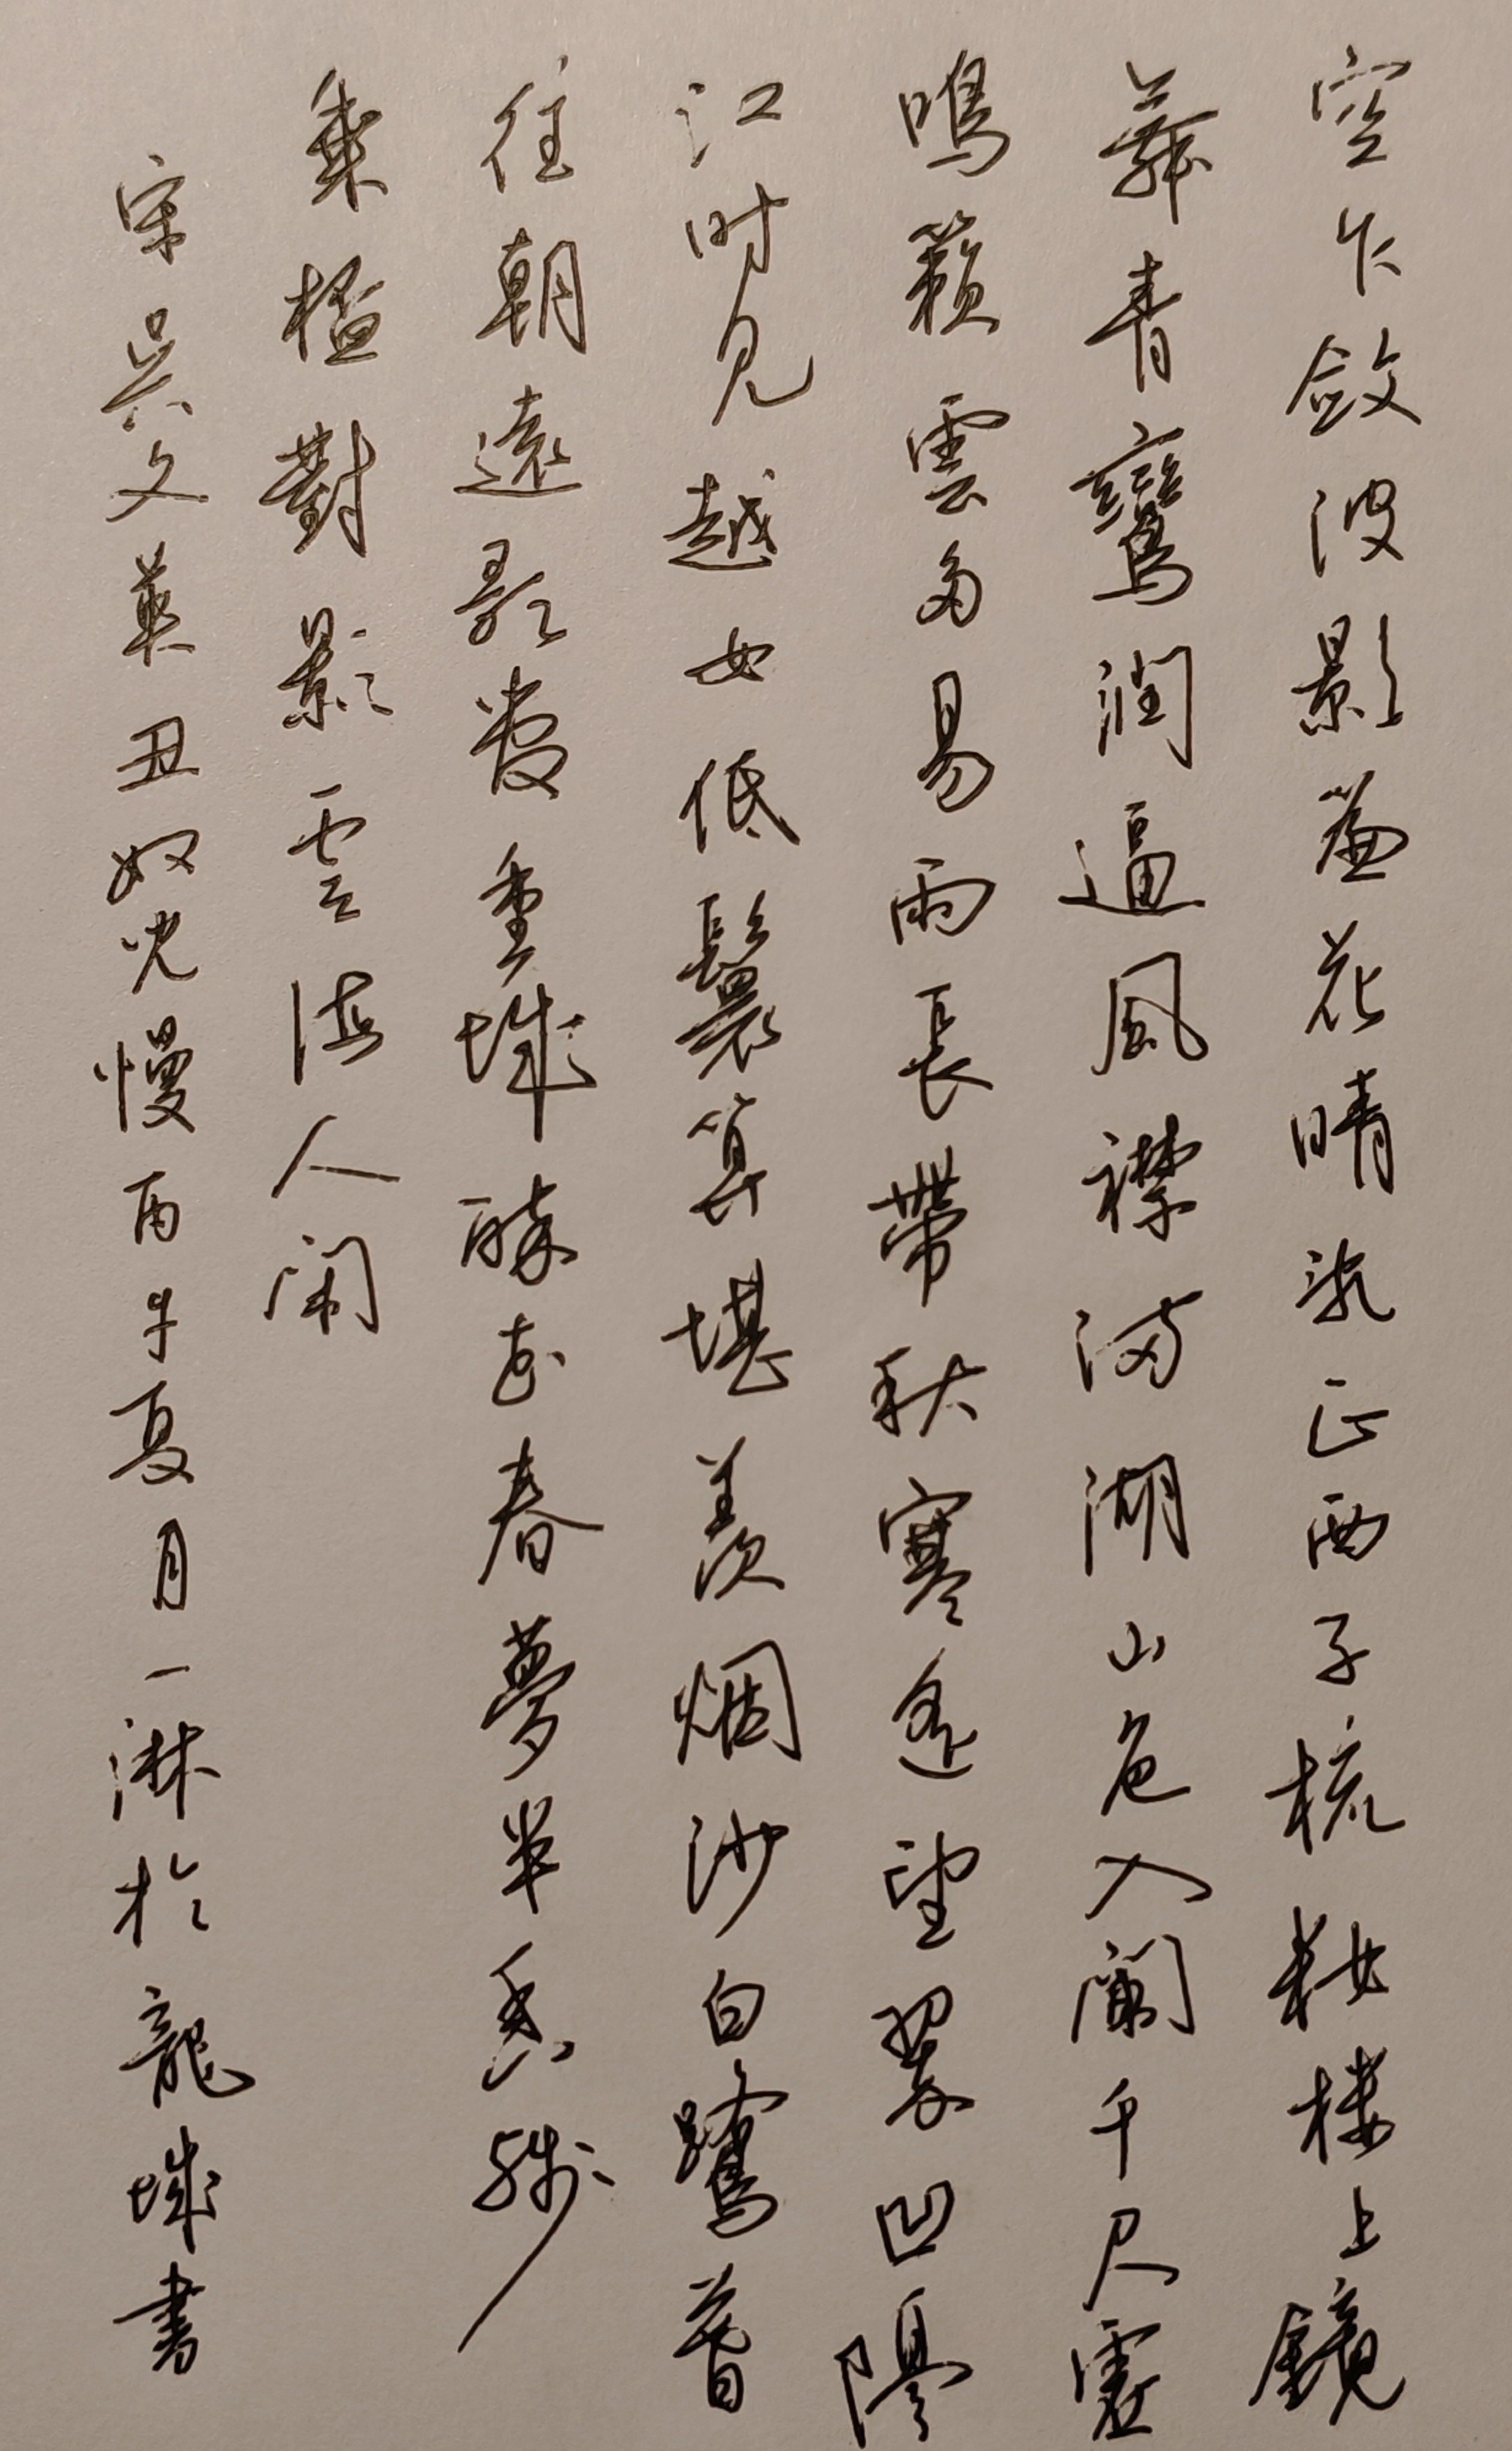 空乍斂波影簾花晴乱正西子梳妝楼上鏡
舞青鸞潤逼風襟满湖山色入闌干天虛
鳴籟雲多易雨長帶秋寒遙望翠凹隔
江时見越女低鬟算堪羨烟沙白鷺暮
往朝還歌管重城醉花春夢半香殘
乘楹對影雲海人闲
宋吴文英丑奴兒慢丙午夏月一淋於龍城書